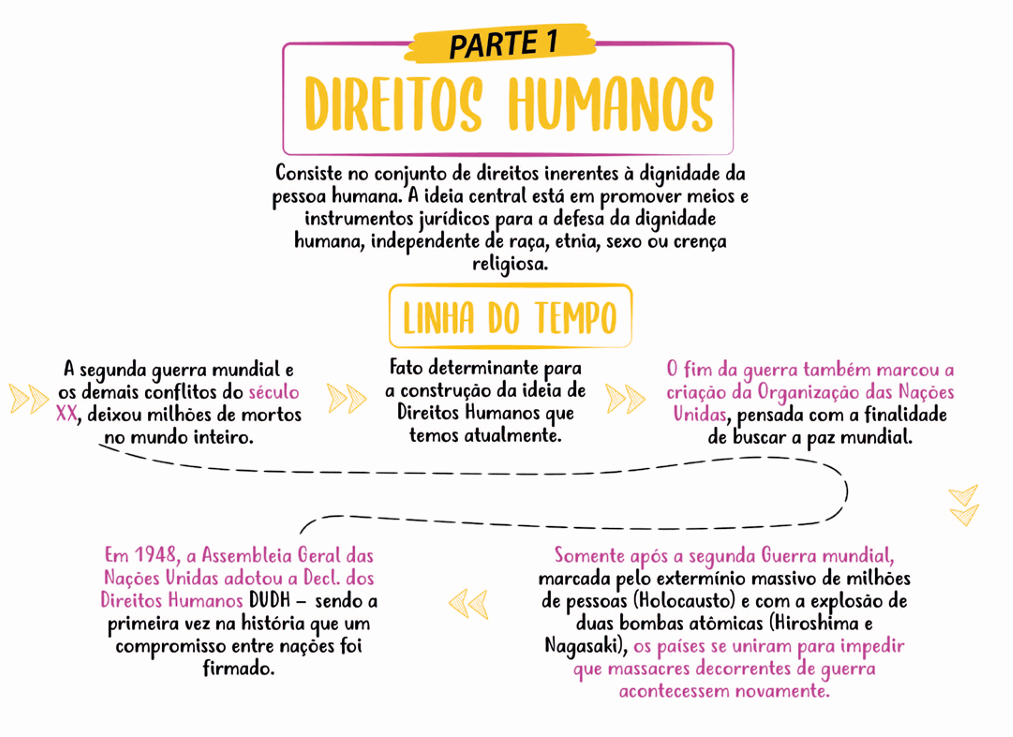 PARTE 1
DIREITOS HUMANOS
Consiste no conjunto de direitos inerentes à dignidade da
pessoa humana. A ideia central está em promover meios e
instrumentos jurídicos para a defesa da dignidade
humana, independente de raça, etnia, sexo ou crença
religiosa.
LINHA DO TEMPO
A segunda guerra mundial e
os demais conflitos do século
XX, deixou milhões de mortos
no mundo inteiro.
Fato determinante para
a construção da ideia de
Direitos Humanos que
temos atualmente.
O fim da guerra também marcou a
criação da Organização das Nações
Unidas, pensada com a finalidade
de buscar a paz mundial.
Somente após a segunda Guerra mundial,
marcada pelo extermínio massivo de milhões
de pessoas (Holocausto) e com a explosão de
duas bombas atômicas (Hiroshima e
Nagasaki), os países se uniram para impedir
que massacres decorrentes de guerra
acontecessem novamente.
Em 1948, a Assembleia Geral das
Nações Unidas adotou a Decl. dos
Direitos Humanos DUDH – sendo a
primeira vez na história que um
compromisso entre nações foi
firmado.